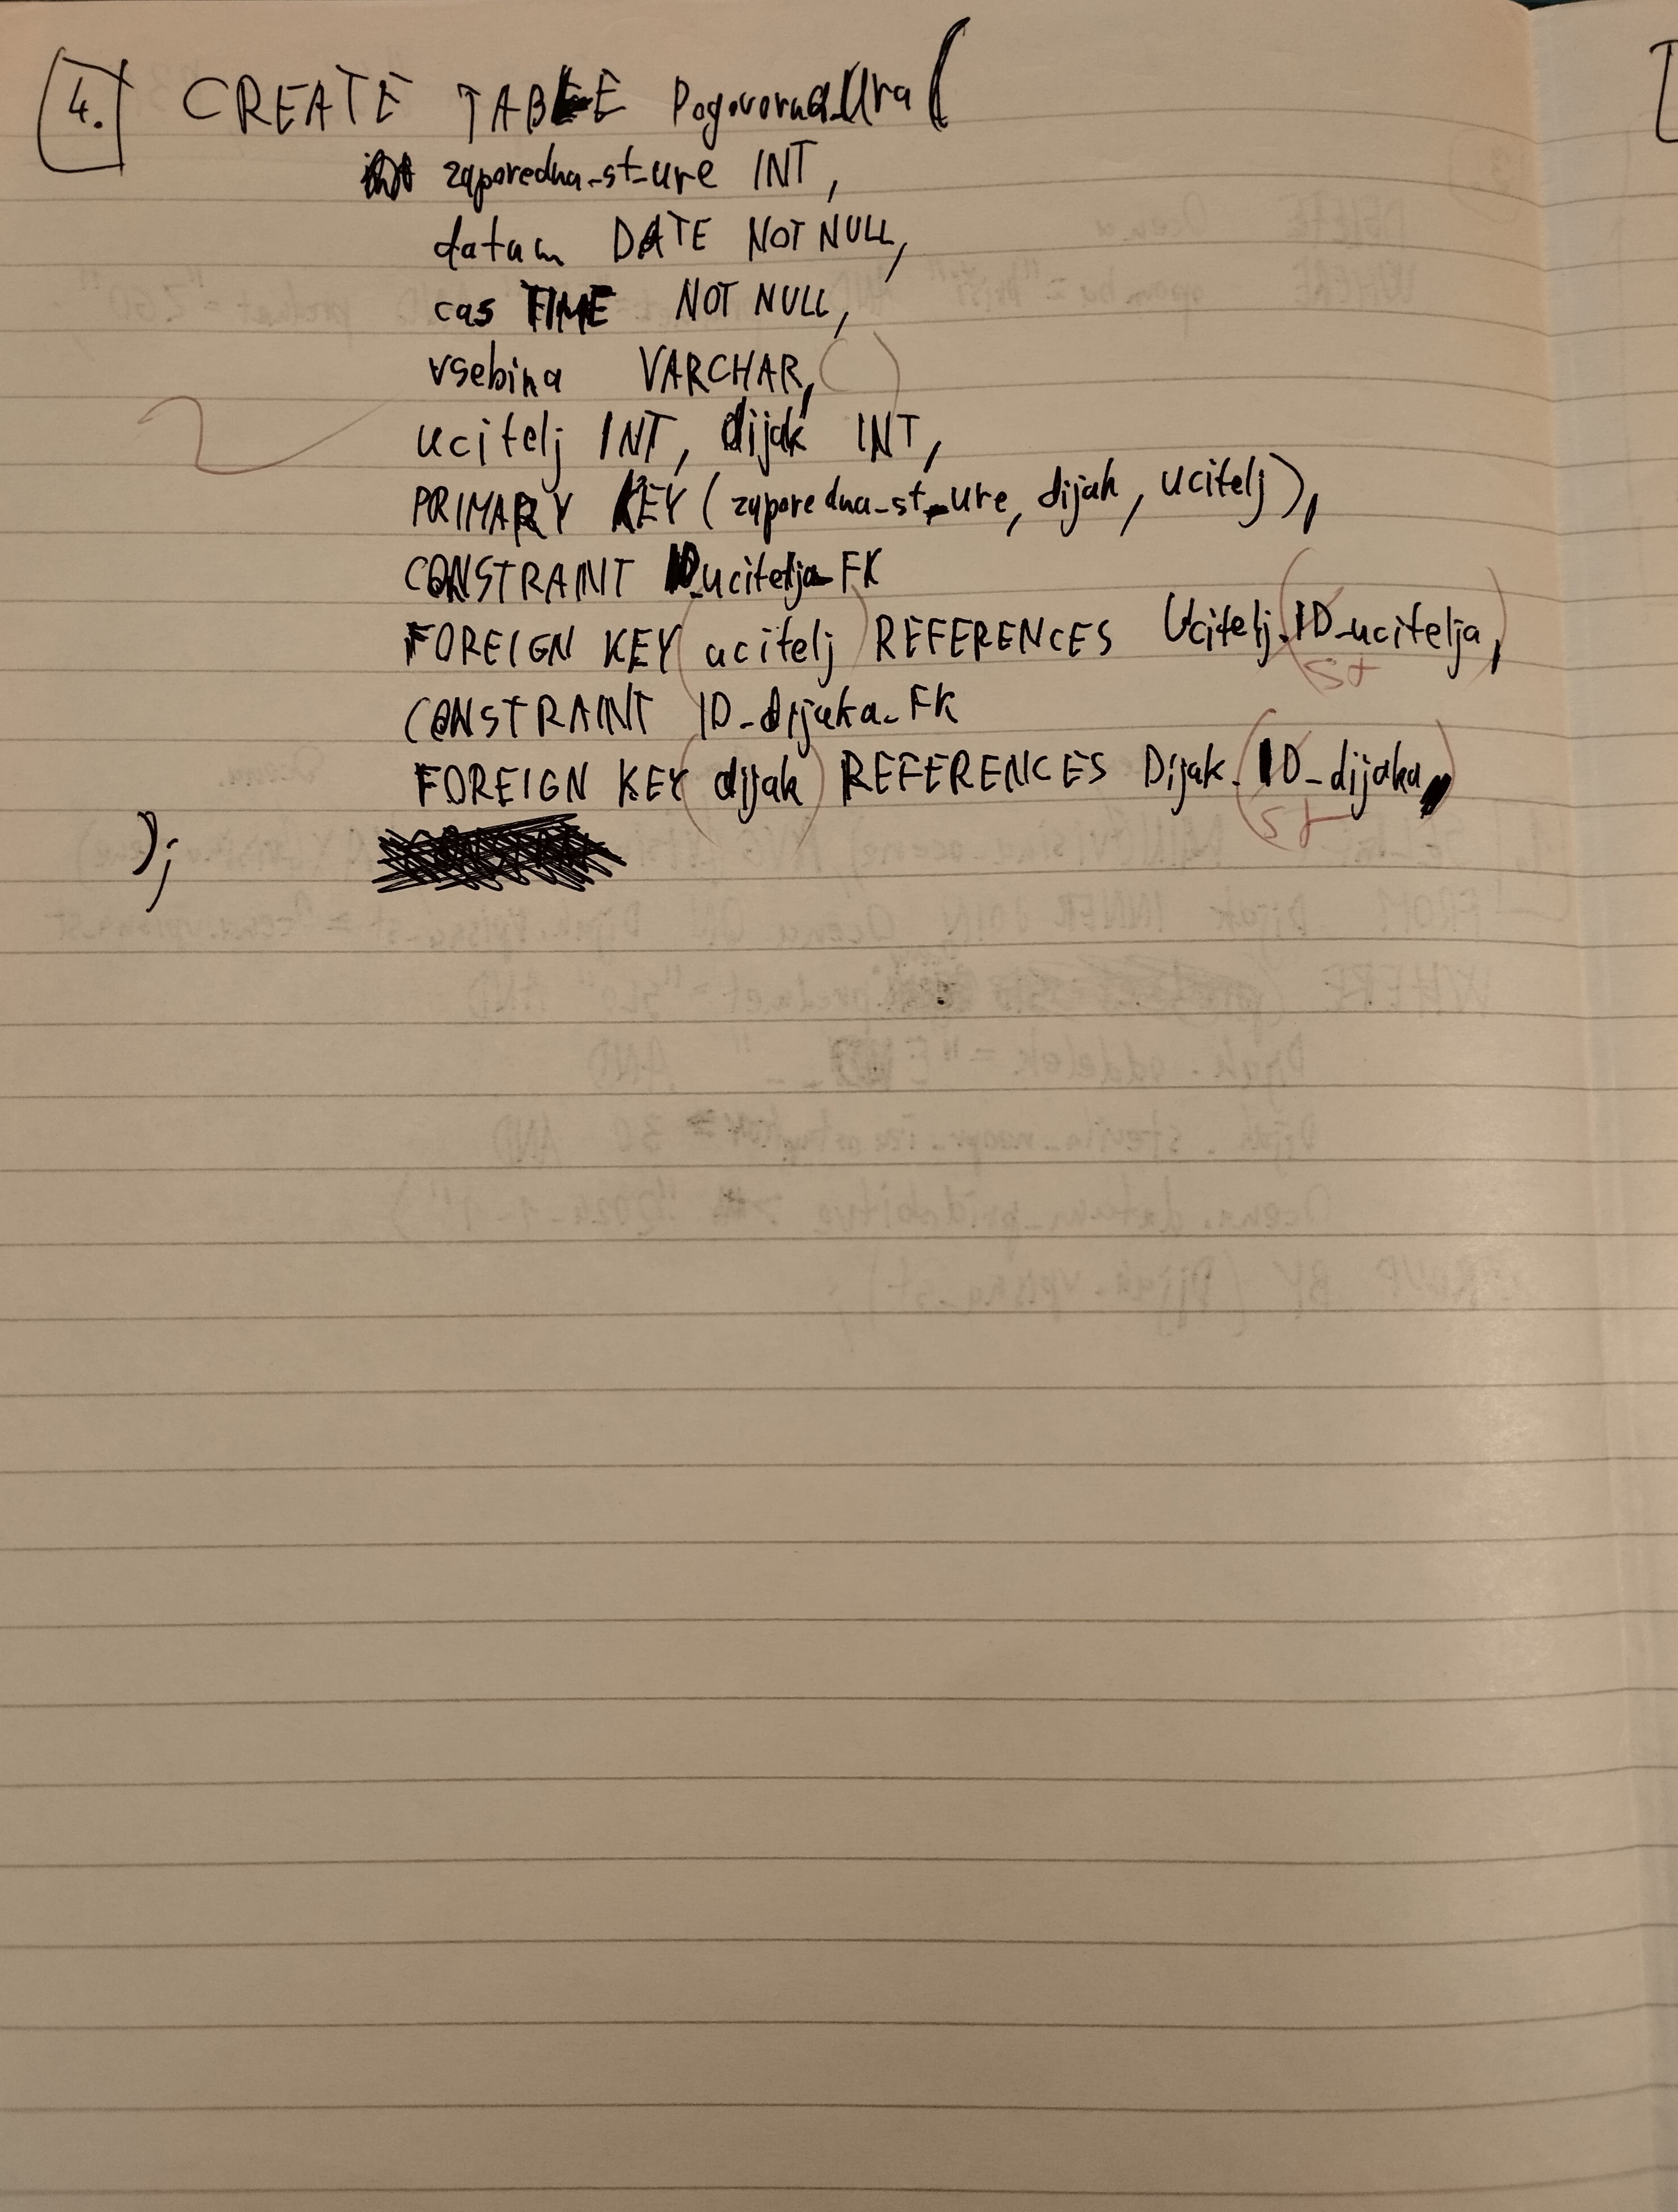 4. CREATE TABLE Pogovorna_Ura (
zaporedna_st_ure INT,
datum DATE NOT NULL,
cas TIME NOT NULL,
vsebina VARCHAR, ( )
ucitelj INT, dijak INT,
PRIMARY KEY ( zaporedna_st_ure, dijak, ucitelj ),
CONSTRAINT ID_ucitelja_FK
FOREIGN KEY ( ucitelj ) REFERENCES Ucitelj. ( ID_ucitelja, )
st
CONSTRAINT ID_dijaka_FK
FOREIGN KEY ( dijak ) REFERENCES Dijak. ( ID_dijaka )
st
);